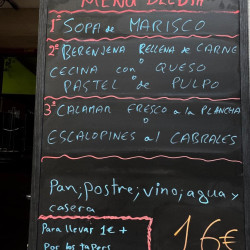 MENÚ DEL DÍA
1º SOPA de MARISCO
2º BERENJENA RELLENA de CARNE
CECINA con QUESO
PASTEL de PULPO
3º CALAMAR FRESCO a la PLANCHA
o
ESCALOPINES al CABRALES
Pan, postre, vino, agua y
casera
Para llevar 1€ +
Por los tapers
16€